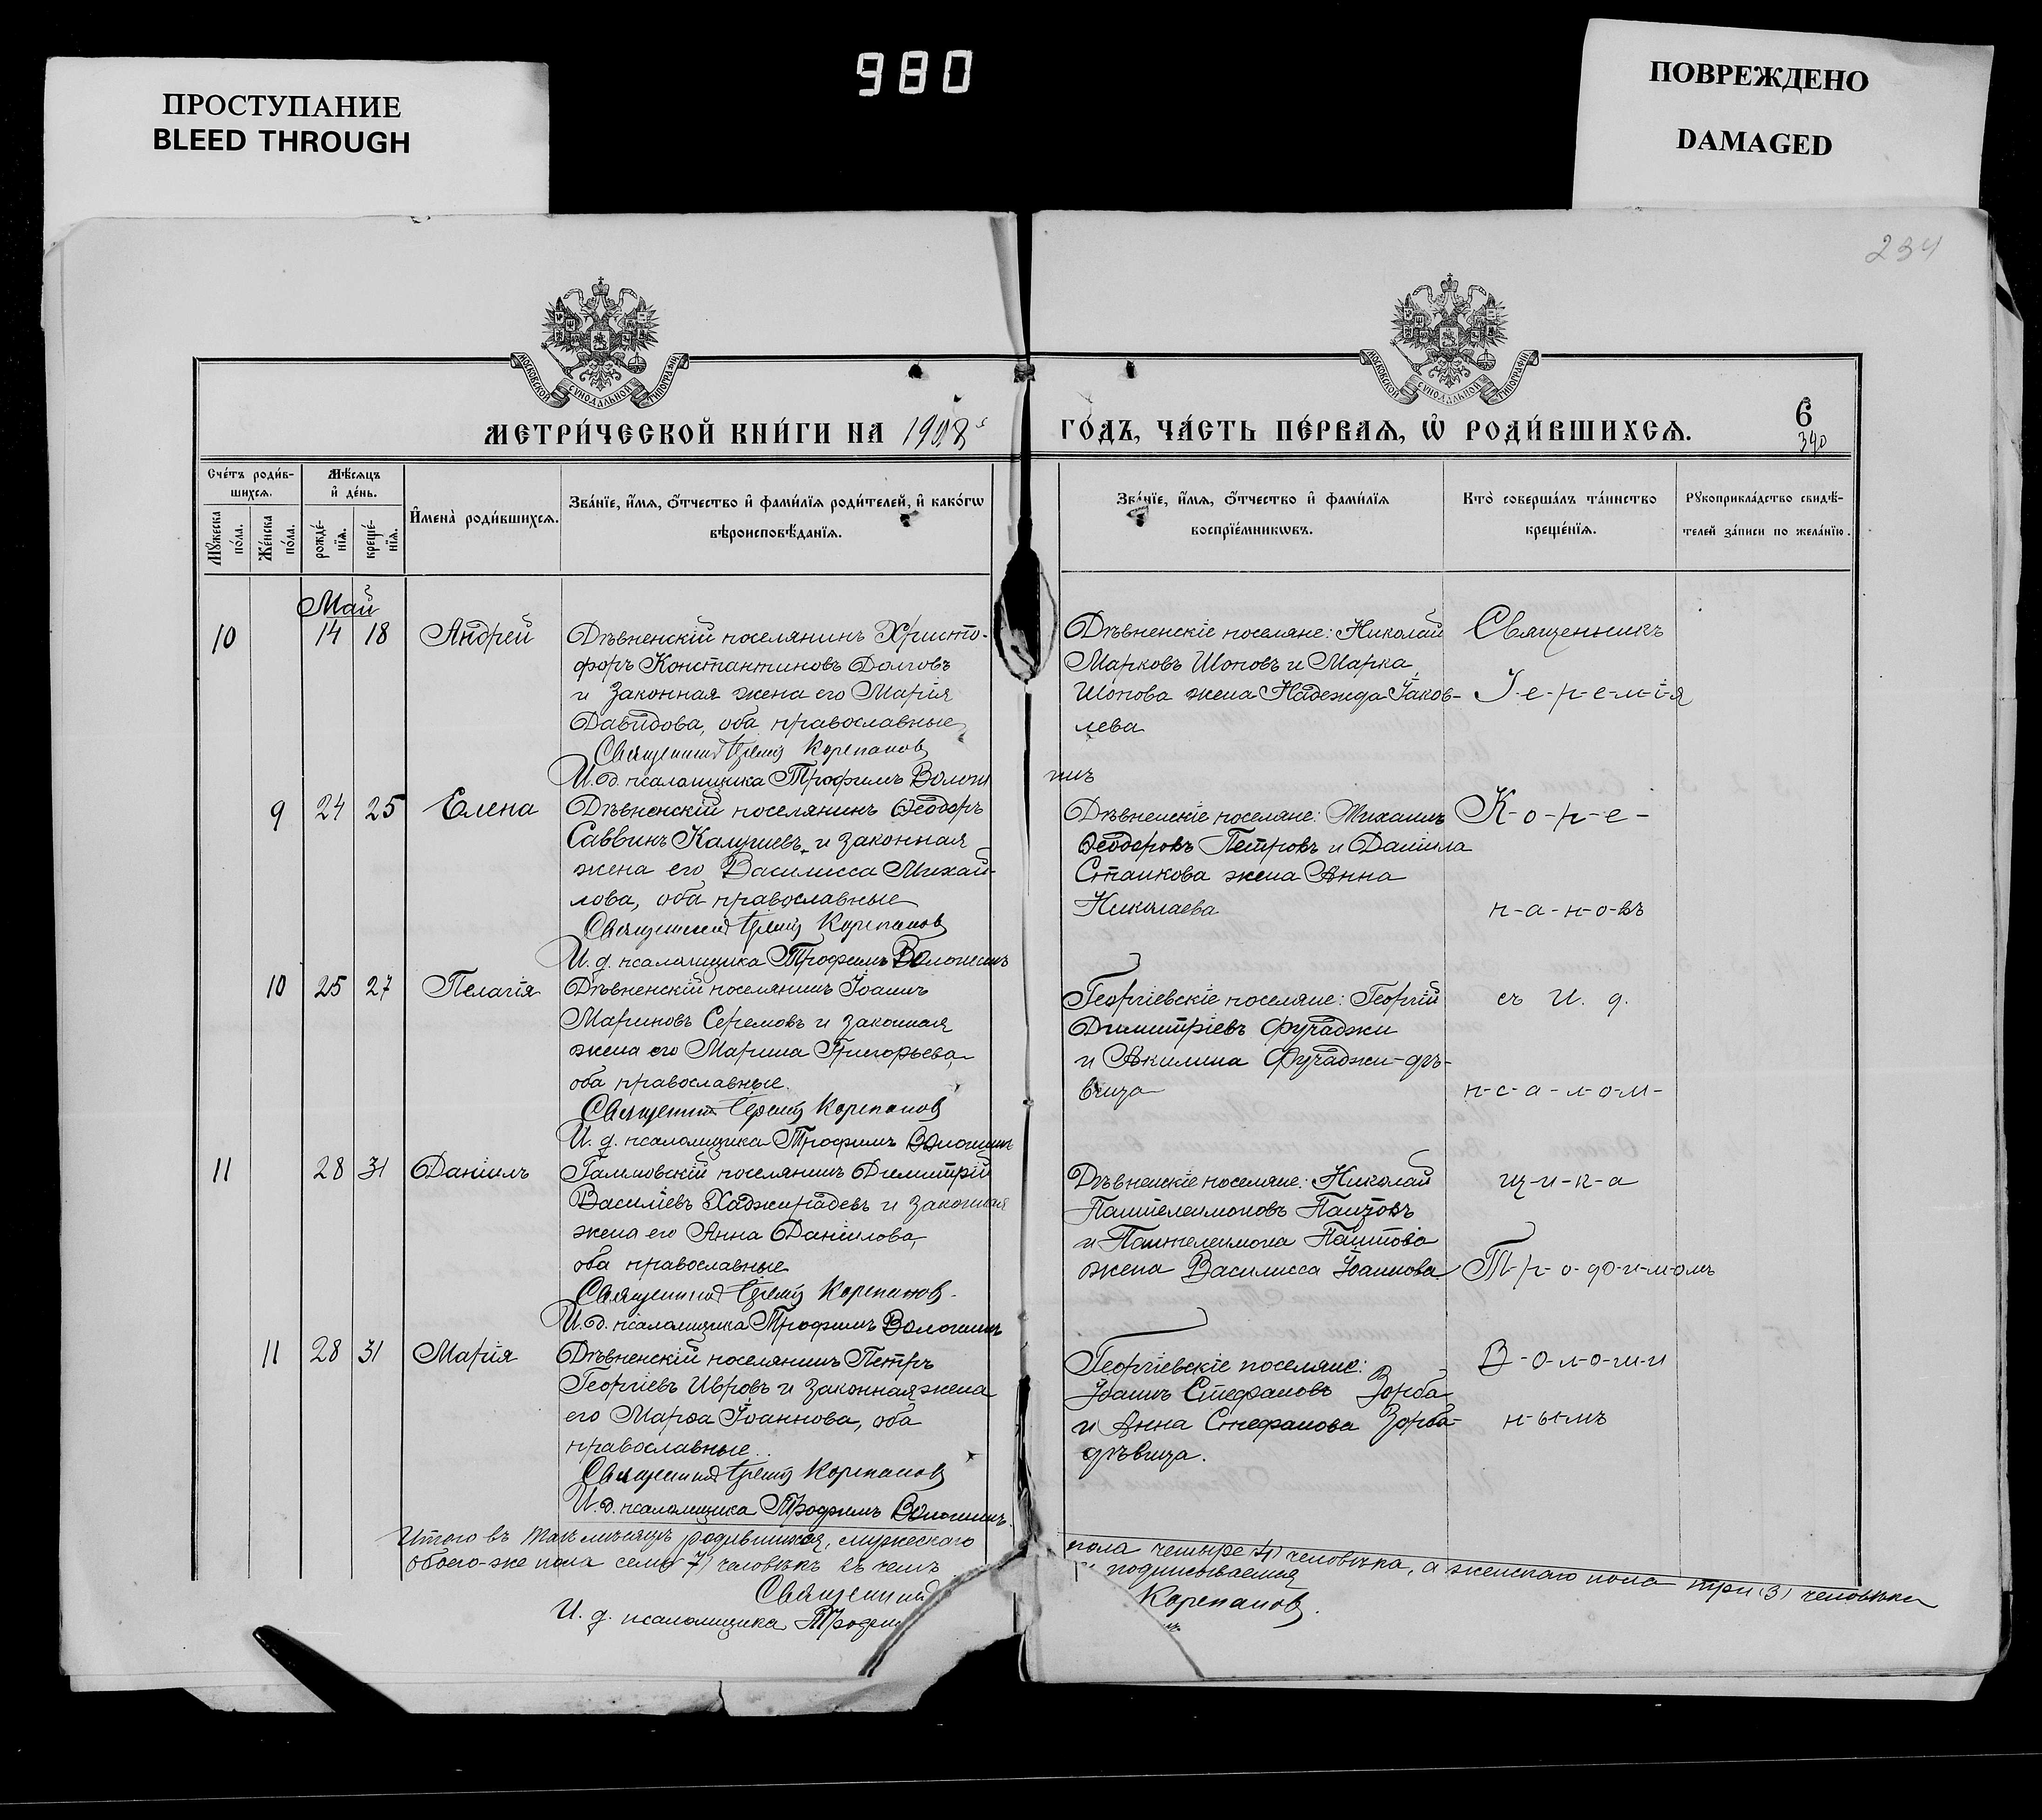 980
ПРОСТУПАНИЕ
BLEED THROUGH
ПОВРЕЖДЕНО
DAMAGED
234
МОСКОВСКОЙ СѴНОДАЛЬНОЙ ТИПОГРАФІИ
МОСКОВСКОЙ СѴНОДАЛЬНОЙ ТИПОГРАФІИ
МЕТРИ́ЧЕСКОЙ КНИ́ГИ НА 1908
ГО́ДЪ, ЧА́СТЬ ПЕ́РВАѦ, Ѡ҆ РОДИ́ВШИХСѦ.
6
390
Сче́тъ роди́в-
шихсѧ.
Мѣ́сѧцъ
и҆ де́нь.
И҆мена̀ роди́вшихсѧ.
Зва́нїе, и҆́мѧ, ѻ҆́тчество и҆ фами́лїѧ роди́телей, и҆ како́гѡ
вѣроисповѣ́данїѧ.
Мꙋ́жеска
по́ла.
Же́нска
по́ла.
рожде́-
нїѧ.
креще́-
нїѧ.
Зва́нїе, и҆́мѧ, ѻ҆́тчество и҆ фами́лїѧ
воспрїе́мникѡвъ.
Кто̀ соверша́лъ та́инство
креще́нїѧ.
Рꙋкоприкла́дство свидѣ́-
телей за́писи по жела́нїю.
Май
10 14 18 Андрей Дѣвненскій поселянинъ Христо-
форъ Константиновъ Долговъ
и законная жена его Марія
Давидова, оба православные
Священникъ Іеремія Корепановъ
И.д. псаломщика Трофимъ Волош
инъ
Дѣвненскіе поселяне: Николай
Марковъ Шоповъ и Марка
Шопова жена Надежда Іаков-
лева
Священникъ
І-е-р-е-м-і-я
9 24 25 Елена Дѣвненскій поселянинъ Ѳеодоръ
Саввинъ Калушевъ и законная
жена его Василисса Михай-
лова, оба православные
Священникъ Іеремія Корепановъ
И. д. псаломщика Трофимъ Волошинъ
Дѣвненскіе поселяне: Михаилъ
Ѳеодоровъ Петровъ и Даніила
Станкова жена Анна
Николаева
К-о-р-е-
п-а-н-о-въ
10 25 27 Пелагія Дѣвненскій поселянинъ Іоаннъ
Мариновъ Серемовъ и законная
жена его Марина Григорьева,
оба православные.
Священникъ Іеремія Корепановъ
И. д. псаломщика Трофимъ Волошинъ
Георгіевскіе поселяне: Георгій
Димитріевъ Фучаджи
и Акилина Фучаджи-дѣ-
вица
съ И. д.
п-с-а-л-о-м-
11 28 31 Даніилъ Галиловскій поселянинъ Димитрій
Василіевъ Хаджирадевъ и законная
жена его Анна Даніилова,
оба православные
Священникъ Іеремія Корепановъ.
И.д. псаломщика Трофимъ Волошинъ
Дѣвненскіе поселяне: Николай
Пантелеимоновъ
и Пантелеимона
жена Василисса Іоаннова
щ-и-к-а
Т-р-о-ф-и-м-омъ
11 28 31 Марія Дѣвненскій поселянинъ Петръ
Георгіевъ Ивровъ и законная жена
его Марѳа Іоаннова, оба
православные.
Священникъ Іеремія Корепановъ
И.д. псаломщика Трофимъ Волошинъ.
Георгіевскіе поселяне:
Іоаннъ Стефановъ Зорба
и Анна Стефанова Зорба-
дѣвица.
В-о-л-о-ш-и
н-ы-мъ
Итого въ маѣ мѣсяцѣ родившихся, мужескаго пола четыре (4) человѣка, а женскаго пола три (3) человѣка
обоего-же пола семь 7) человѣкъ въ чемъ и подписываемся
Священникъ Корепановъ.
И. д. псаломщика Трофим